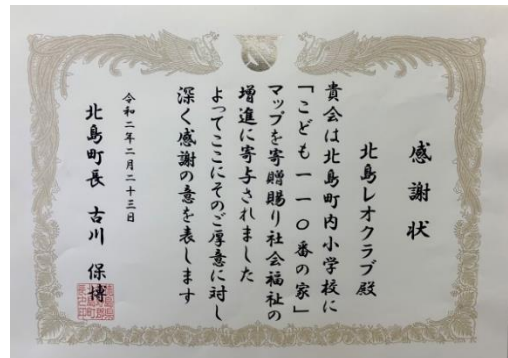 感謝状
北島レオクラブ殿
貴会は北島町内小学校に
「こども一一〇番の家」
マップを寄贈賜り社会福祉の
増進に寄与されました
よってここにそのご厚意に対し
深く感謝の意を表します
令和二年二月二十三日
北島町長 古川 保博